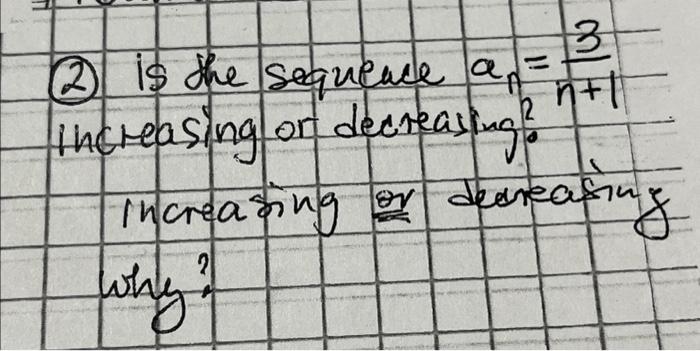 ② is the sequence aₙ = 3/(n+1)
increasing or decreasing?
increasing or decreasing
why?